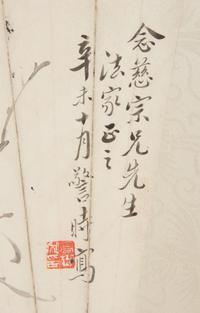 念慈宗兄先生
法家正之
辛未十月警時寫